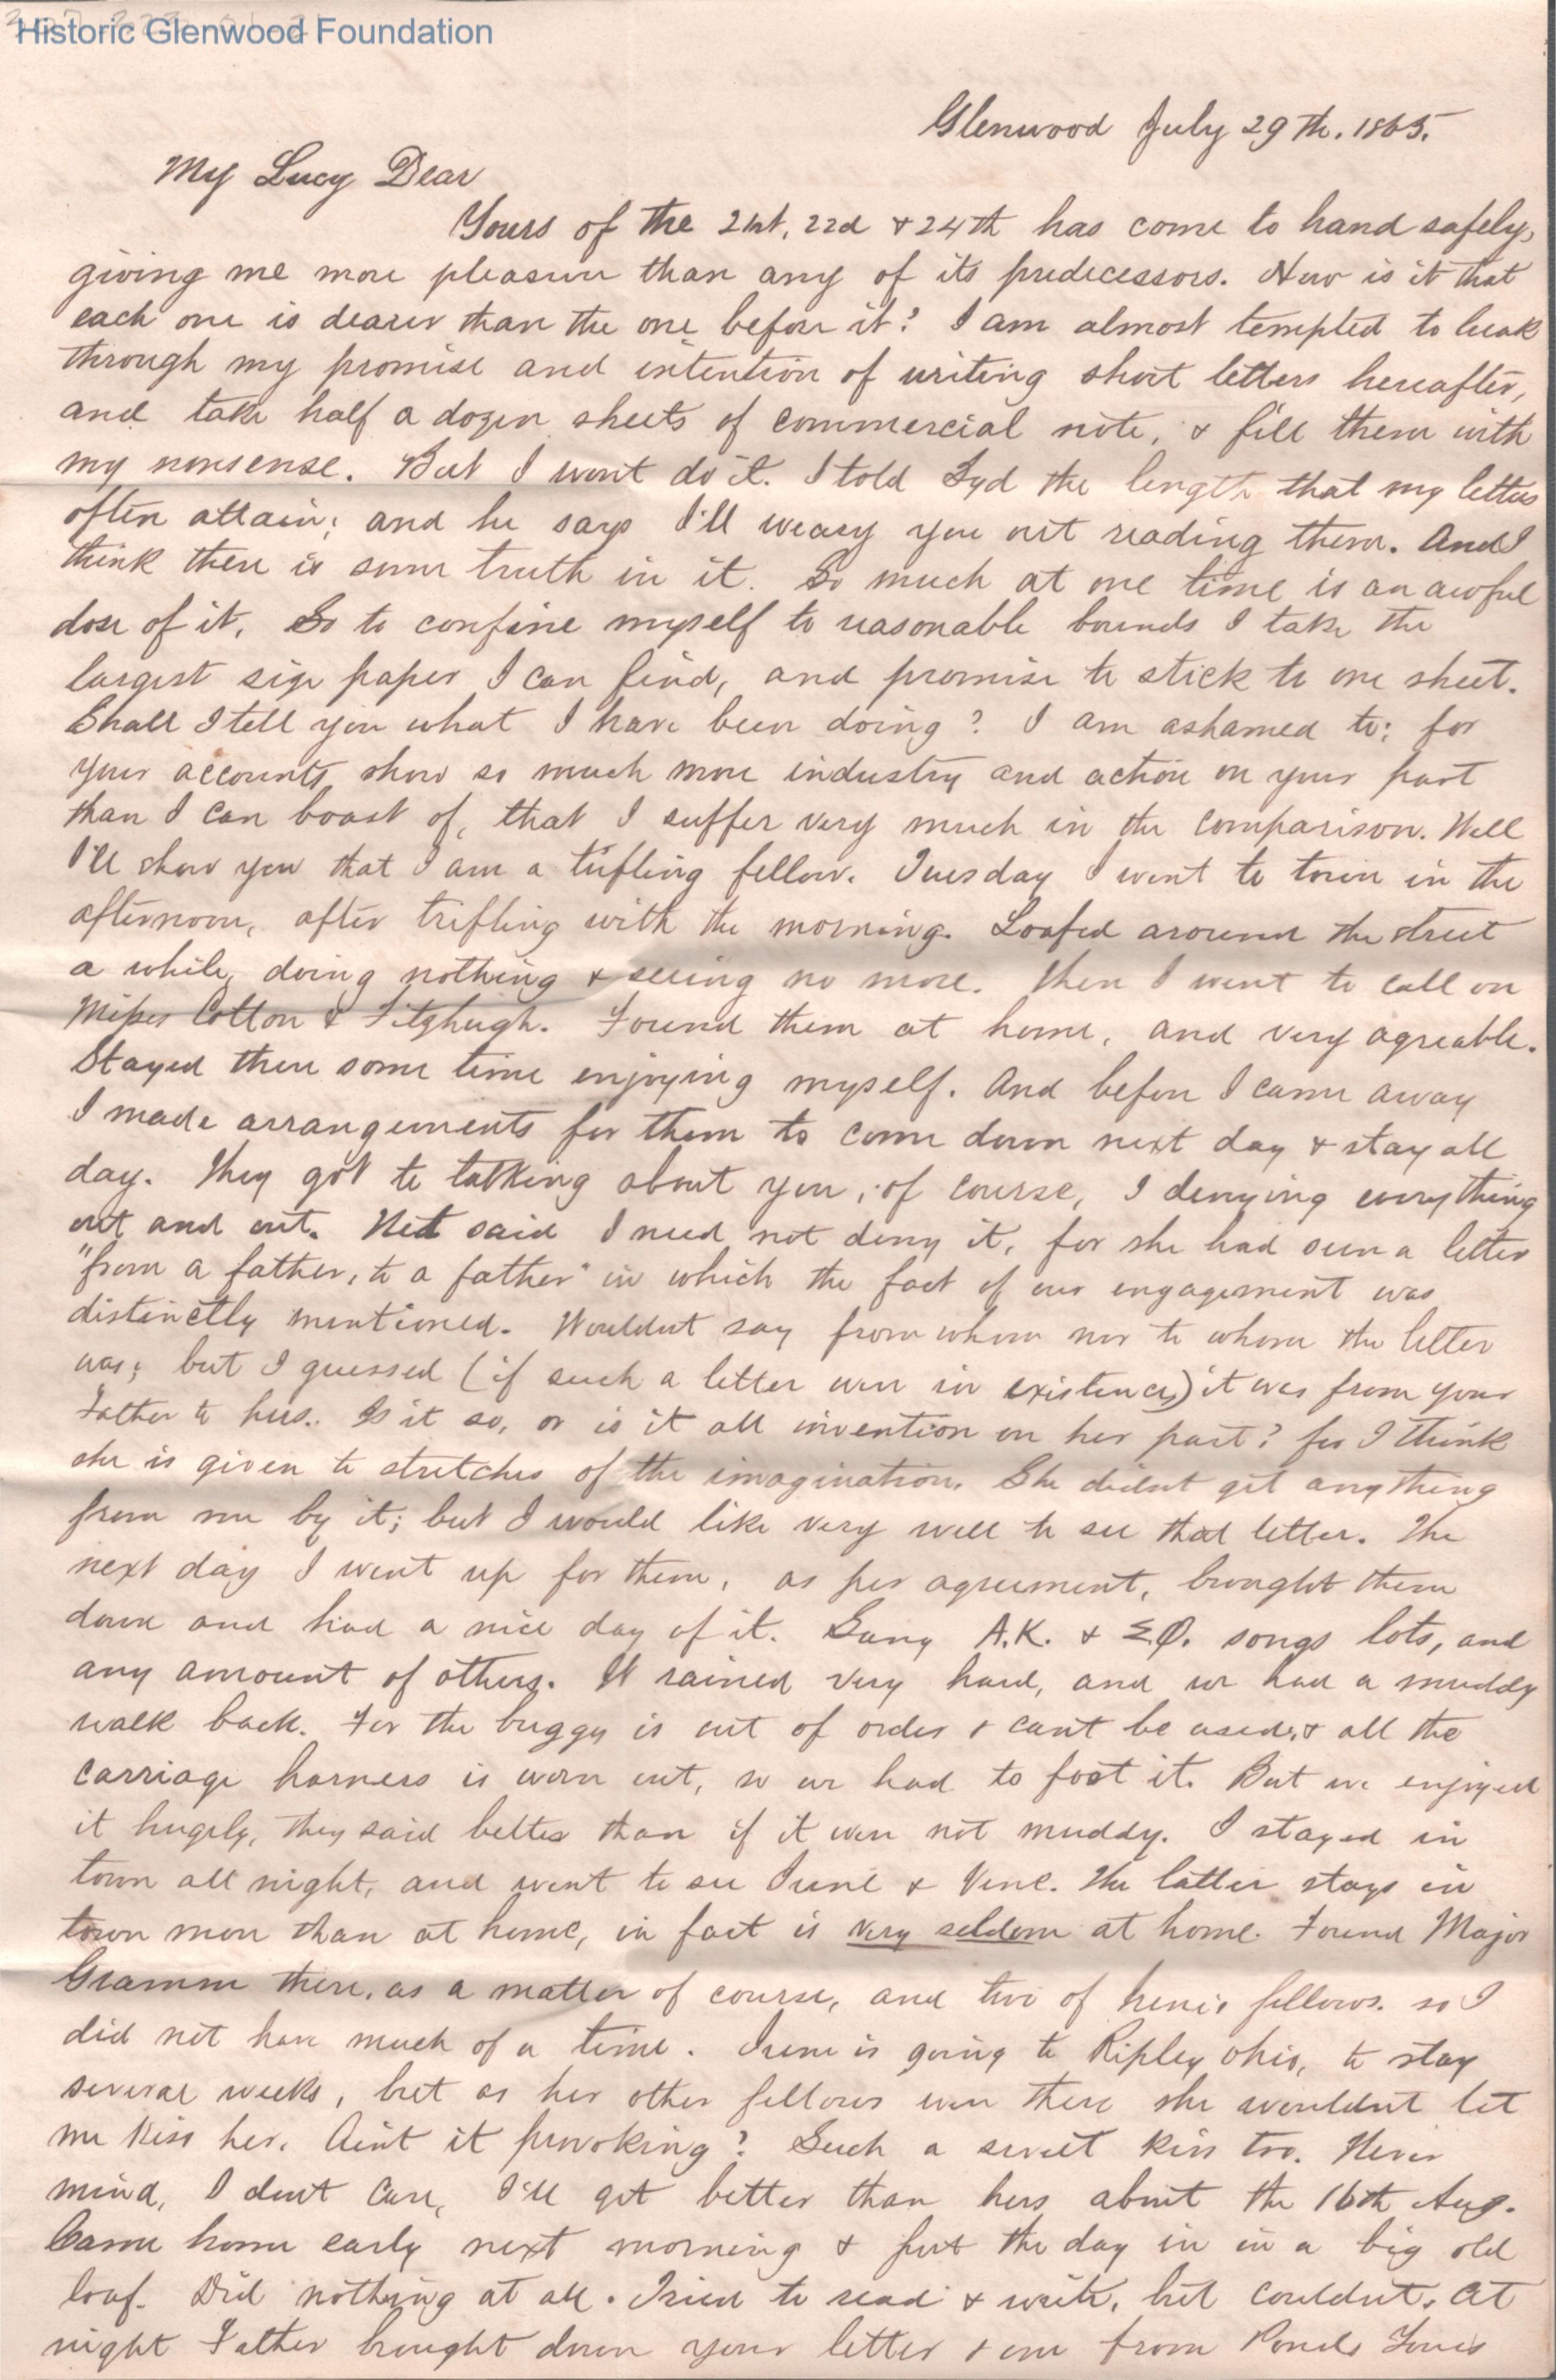 Historic Glenwood Foundation
Glenwood July 29th. 1865.
My Lucy Dear
Yours of the 21st, 22d & 24th has come to hand safely,
giving me more pleasure than any of its predecessors. How is it that
each one is dearer than the one before it? I am almost tempted to break
through my promise and intention of writing short letters hereafter,
and take half a dozen sheets of commercial note, & fill them with
my nonsense. But I wont do it. I told Syd the length that my letters
often attain; and he says I'll weary you out reading them. And I
think there is some truth in it. So much at one time is an awful
dose of it. So to confine myself to reasonable bounds I take the
largest size paper I can find, and promise to stick to one sheet.
Shall I tell you what I have been doing? I am ashamed to; for
your accounts show so much more industry and action on your part
than I can boast of, that I suffer very much in the comparison. Well
I'll show you that I am a trifling fellow. Tuesday I went to town in the
afternoon, after trifling with the morning. Loafed around the street
a while, doing nothing & seeing no more. Then I went to call on
Misses Cotton & Fitzhugh. Found them at home, and very agreable.
Stayed there some time enjoying myself. And before I came away
I made arrangements for them to come down next day & stay all
day. They got to talking about you, of course, I denying everything
out and out. Net said I need not deny it, for she had seen a letter
"from a father, to a father" in which the fact of our engagement was
distinctly mentioned. Wouldnt say from whom nor to whom the letter
was; but I guessed (if such a letter were in existence) it was from your
Father to hers. Is it so, or is it all invention on her part? for I think
she is given to stretches of the imagination. She didnt get anything
from me by it; but I would like very well to see that letter. The
next day I went up for them, as per agreement, brought them
down and had a nice day of it. Sung A.K. & ΣΦ. songs lots, and
any amount of others. It rained very hard, and we had a muddy
walk back. For the buggy is out of order & cant be used, & all the
carriage harness is worn out, so we had to foot it. But we enjoyed
it hugely, they said better than if it were not muddy. I stayed in
town all night, and went to see Irene & Vene. The latter stays in
town more than at home, in fact is very seldom at home. Found Major
Gramm there, as a matter of course, and two of Irene's fellows. so I
did not have much of a time. Irene is going to Ripley Ohio, to stay
several weeks, but as her other fellows were there she wouldnt let
me kiss her. Aint it provoking? Such a sweet kiss too. Never
mind, I dont care, I'll get better than hers about the 16th Aug.
Came home early next morning & put the day in in a big old
loaf. Did nothing at all. Tried to read & write, but couldnt. At
night Father brought down your letter & one from Yours